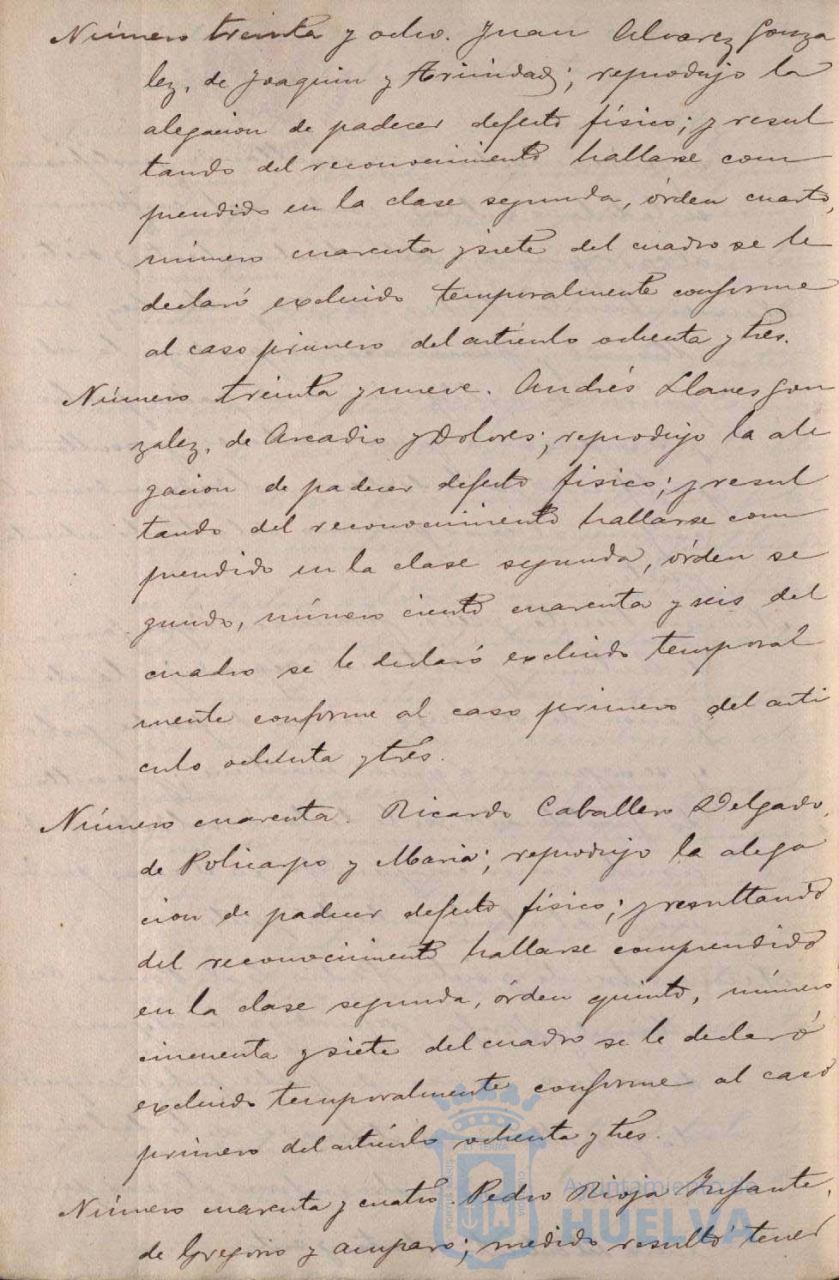 Número treinta y ocho. Juan Alvarez Gonza
lez, de Joaquin y Trinidad; reprodujo la
alegacion de padecer defecto físico; y resul
tando del reconocimiento hallarse com
prendido en la clase segunda, órden cuarto,
número cuarenta y siete del cuadro se le
declaró excluido temporalmente conforme
al caso primero del artículo ochenta y tres.
Número treinta y nueve. Andrés Llanes Gon
zalez, de Arcadio y Dolores; reprodujo la ale
gacion de padecer defecto físico; y resul
tando del reconocimiento hallarse com
prendido en la clase segunda, órden se
gundo, número ciento cuarenta y seis del
cuadro se le declaró excluido temporal
mente conforme al caso primero del arti
culo ochenta y tres.
Número cuarenta. Ricardo Caballero Delgado,
de Policarpo y Maria; reprodujo la alega
cion de padecer defecto físico; y resultando
del reconocimiento hallarse comprendido
en la clase segunda, órden quinto, número
cincuenta y siete del cuadro se le declaró
excluido temporalmente conforme al caso
primero del artículo ochenta y tres.
Número cuarenta y cuatro. Pedro Rioja Infante,
de Gregorio y Amparo; medido resultó tener
Ayuntamiento de
HUELVA